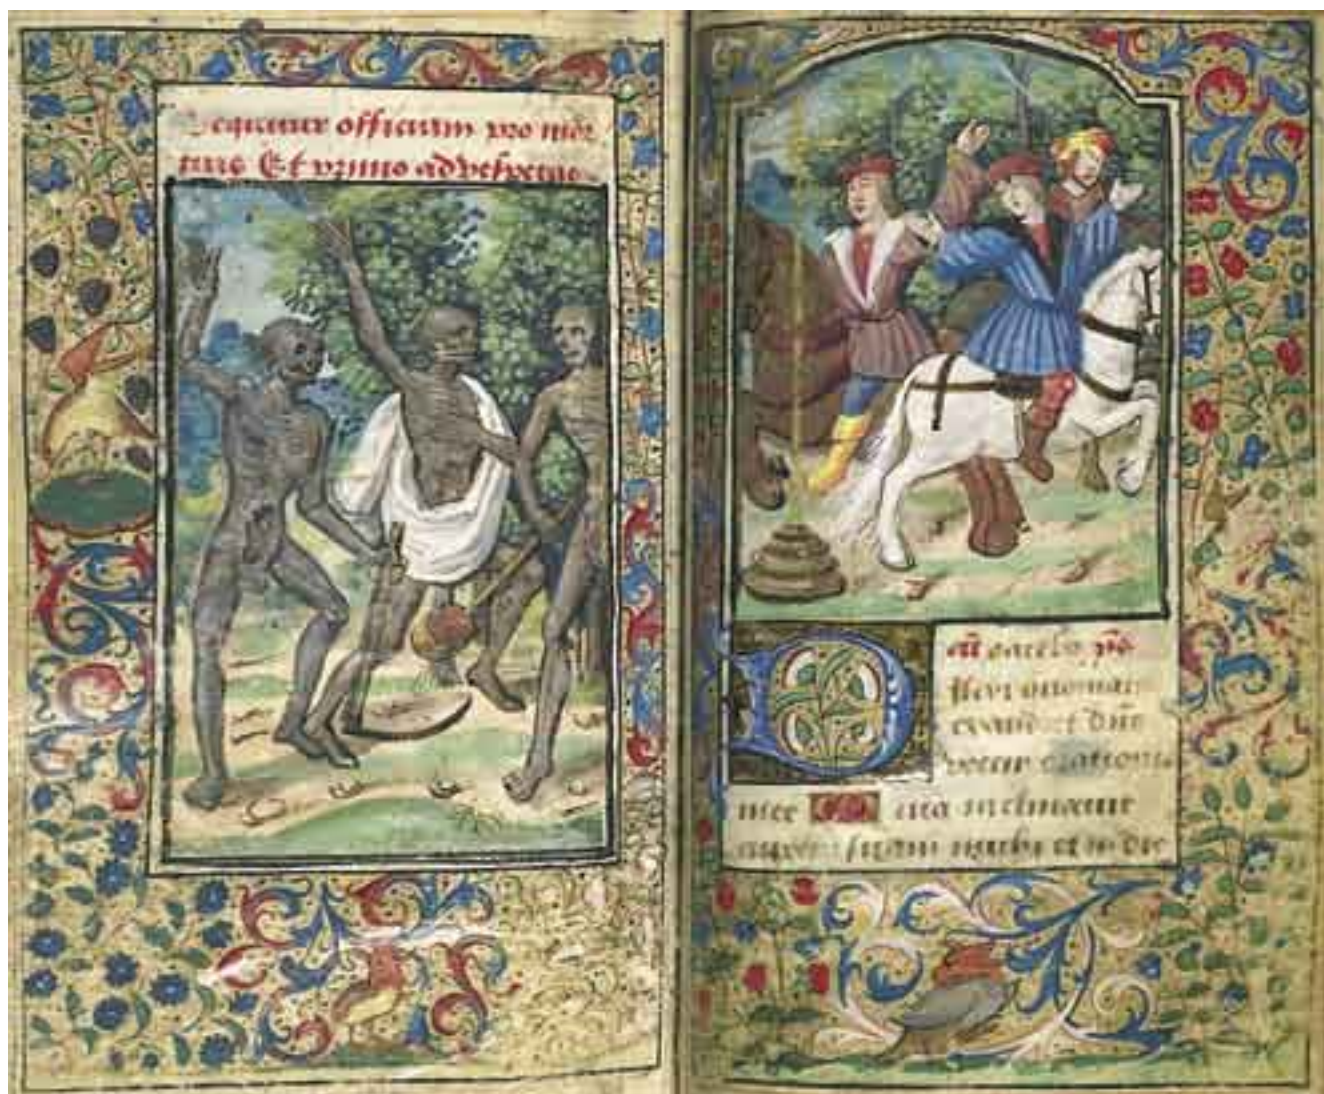 officium pro mor
tuis Et primo ad vesperas
añ placebo
ilexi quoniam
exaudiet dñs
vocem orationis
mee Quia inclinavit
aurem suam michi et in die